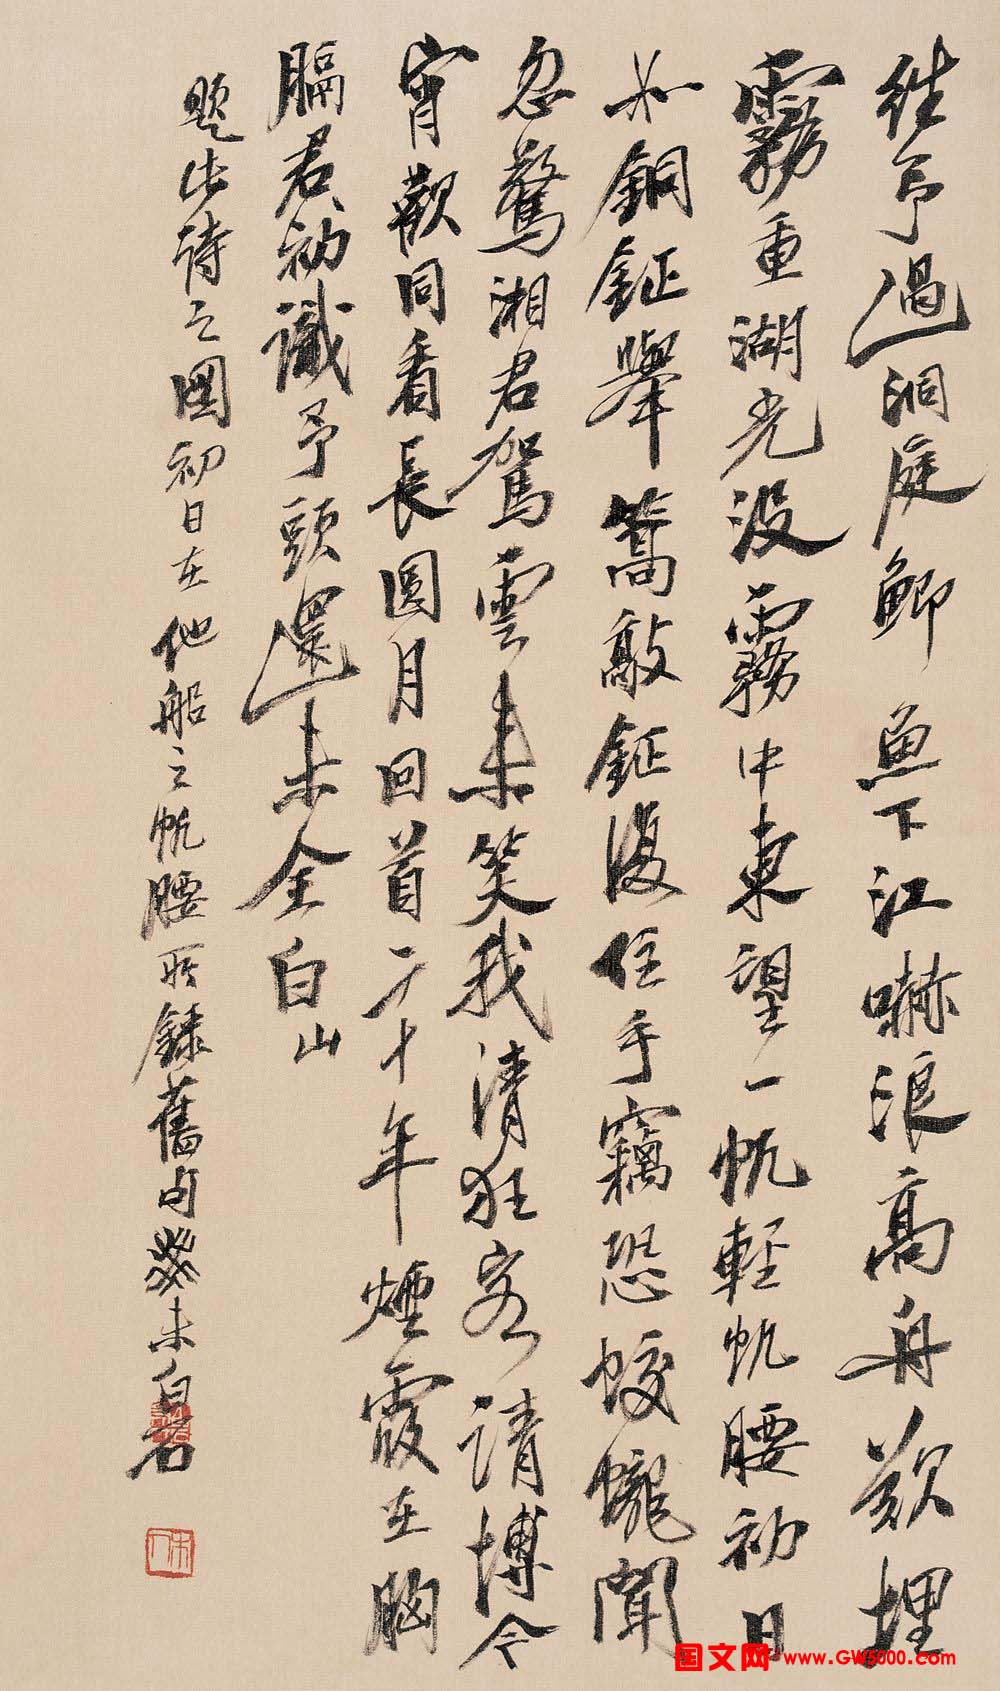 往予過洞庭鯽魚下江嚇浪高舟欲埋
霧重湖光没霧中東望一帆輕帆腰初日
如銅鉦舉篙敲鉦復住手竊恐蛟蠪聞
忽驚湘君駕雲来笑我清狂客請博今
宵歡同看長圓月回首二十年煙霞在胸
膈君初識予頭還未全白山
題此詩之圖初日在他船之帆腰所錄舊句癸未白石
木人
国文网 www.GW5000.com